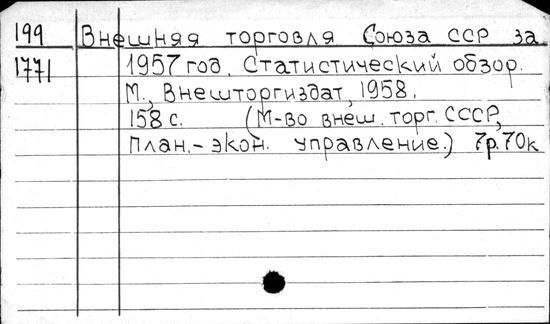 199 Внешняя торговля Союза ССР за
1771 1957 год. Статистический обзор.
М., Внешторгиздат, 1958.
158 с. (М-во внеш. торг. СССР,
План.-экон. управление.) 7р.70к